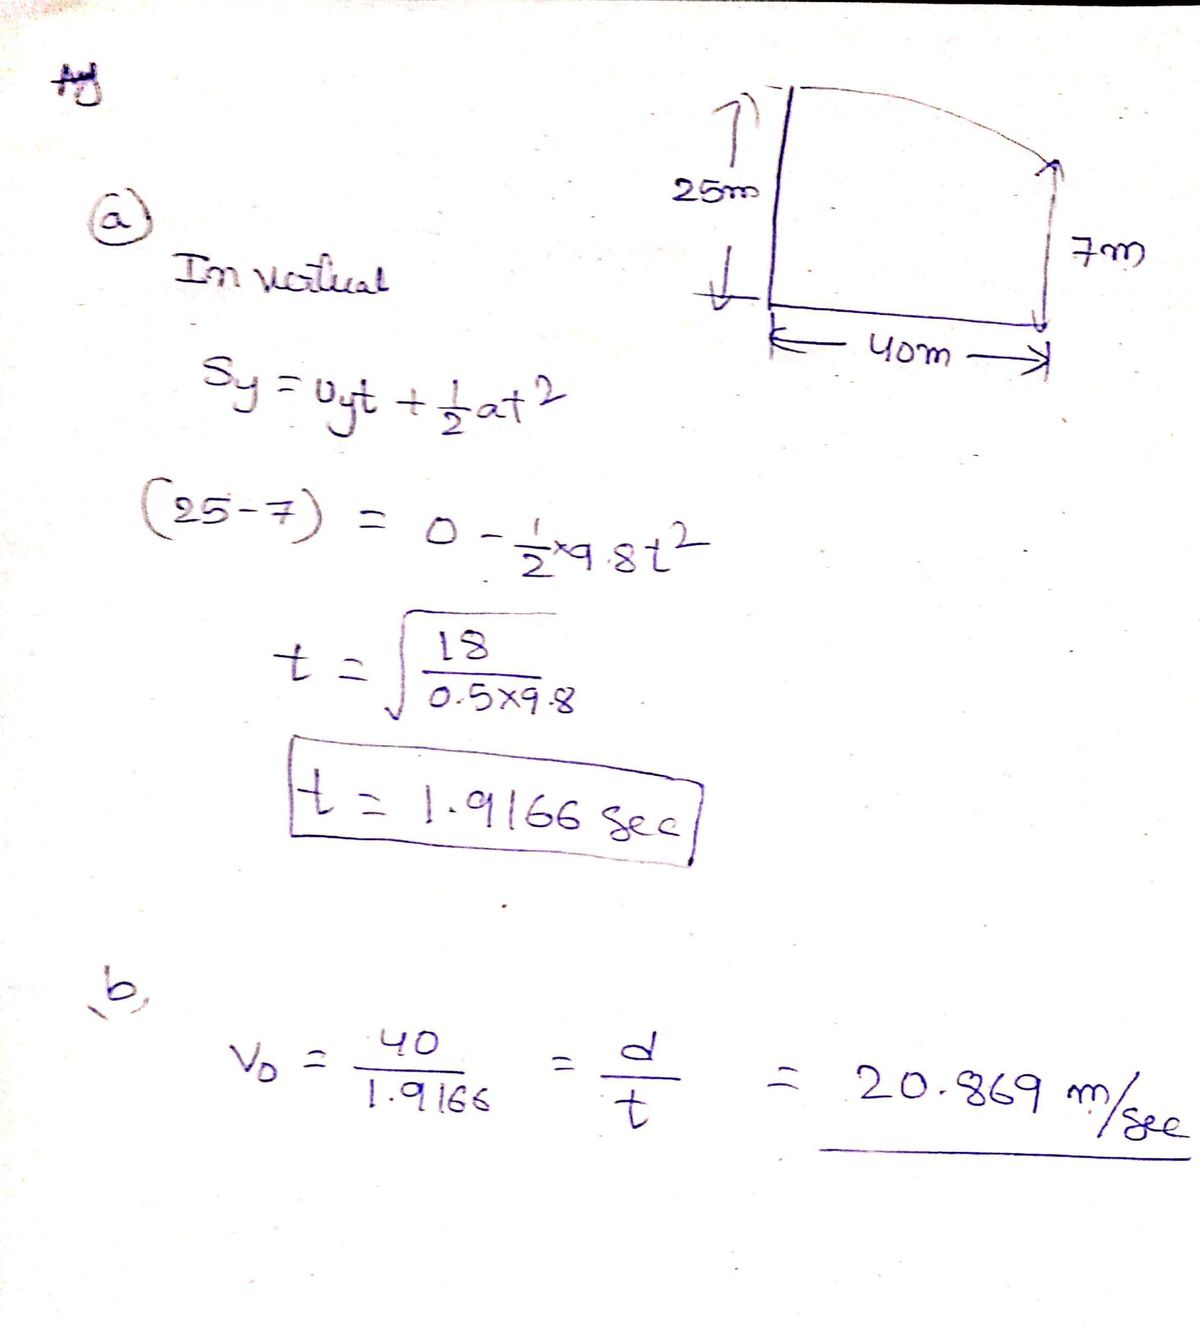 25m
7m
40m
(a)
In vertical
Sy = Uyt + 1/2 at²
(25-7) = 0 - 1/2 × 9.8t²
t = √(18 / 0.5×9.8)
t = 1.9166 sec
b,
V₀ = 40/1.9166 = d/t = 20.869 m/sec